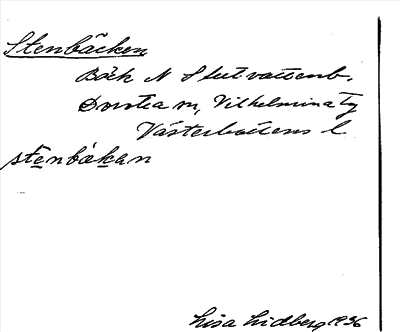 Stenbäcken
Bäck N Slutvattenb.
Dorotea sn, Vilhelmina tg
Västerbottens l
stenbäkan
Lisa Lidberg 1936